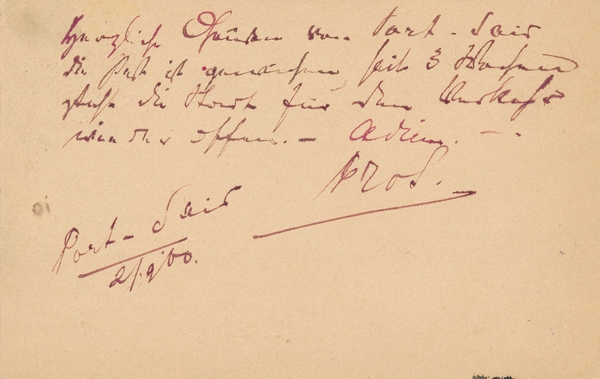 Herzliche Grüsse von Port-Said
die Pest ist gewichen, seit 3 Wochen
steht die Stadt für den Verkehr
wieder offen. — Adieu. —
Port-Said
2/9/00.